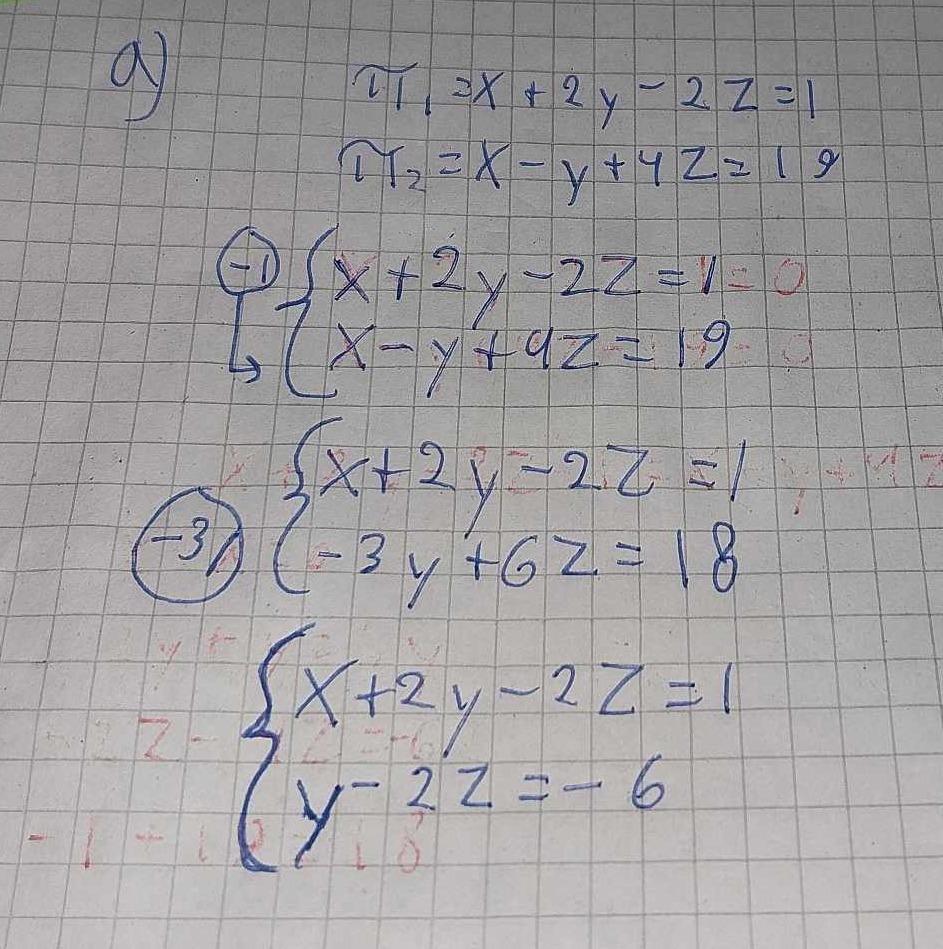 a)
π₁ = x + 2y - 2z = 1
π₂ = x - y + 4z = 19
-1 { x + 2y - 2z = 1 = 0
x - y + 4z = 19 = 0
{ x + 2y - 2z = 1
-3/ { -3y + 6z = 18
{ x + 2y - 2z = 1
y - 2z = - 6